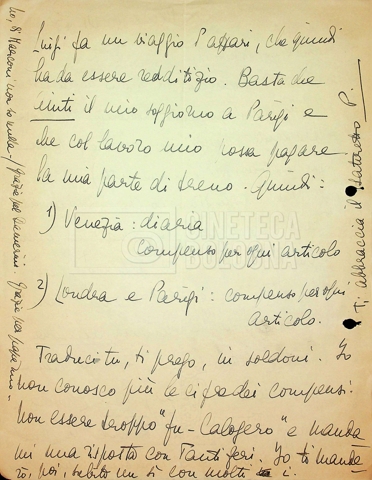 Luigi fa un viaggio d'affari, che quindi
ha da essere redditizio. Basta che
il mio soggiorno a Parigi e
che col lavoro mio possa pagare
la mia parte di treno. Quindi:
1) Venezia: diaria
compenso per ogni articolo
2) Londra e Parigi: compenso per ogni
articolo.
Traduci tu, ti prego, in soldoni. Io
non conosco più le cifre dei compensi.
Non essere troppo "fu-Calogero" e manda
mi una risposta con tanti feri. Io ti mande
rò, poi, subito un sì con molti i.
No, di Marconi non so nulla - Grazie pel
Grazie per
Ti abbraccia il P.
CINETECA
BOLOGNA